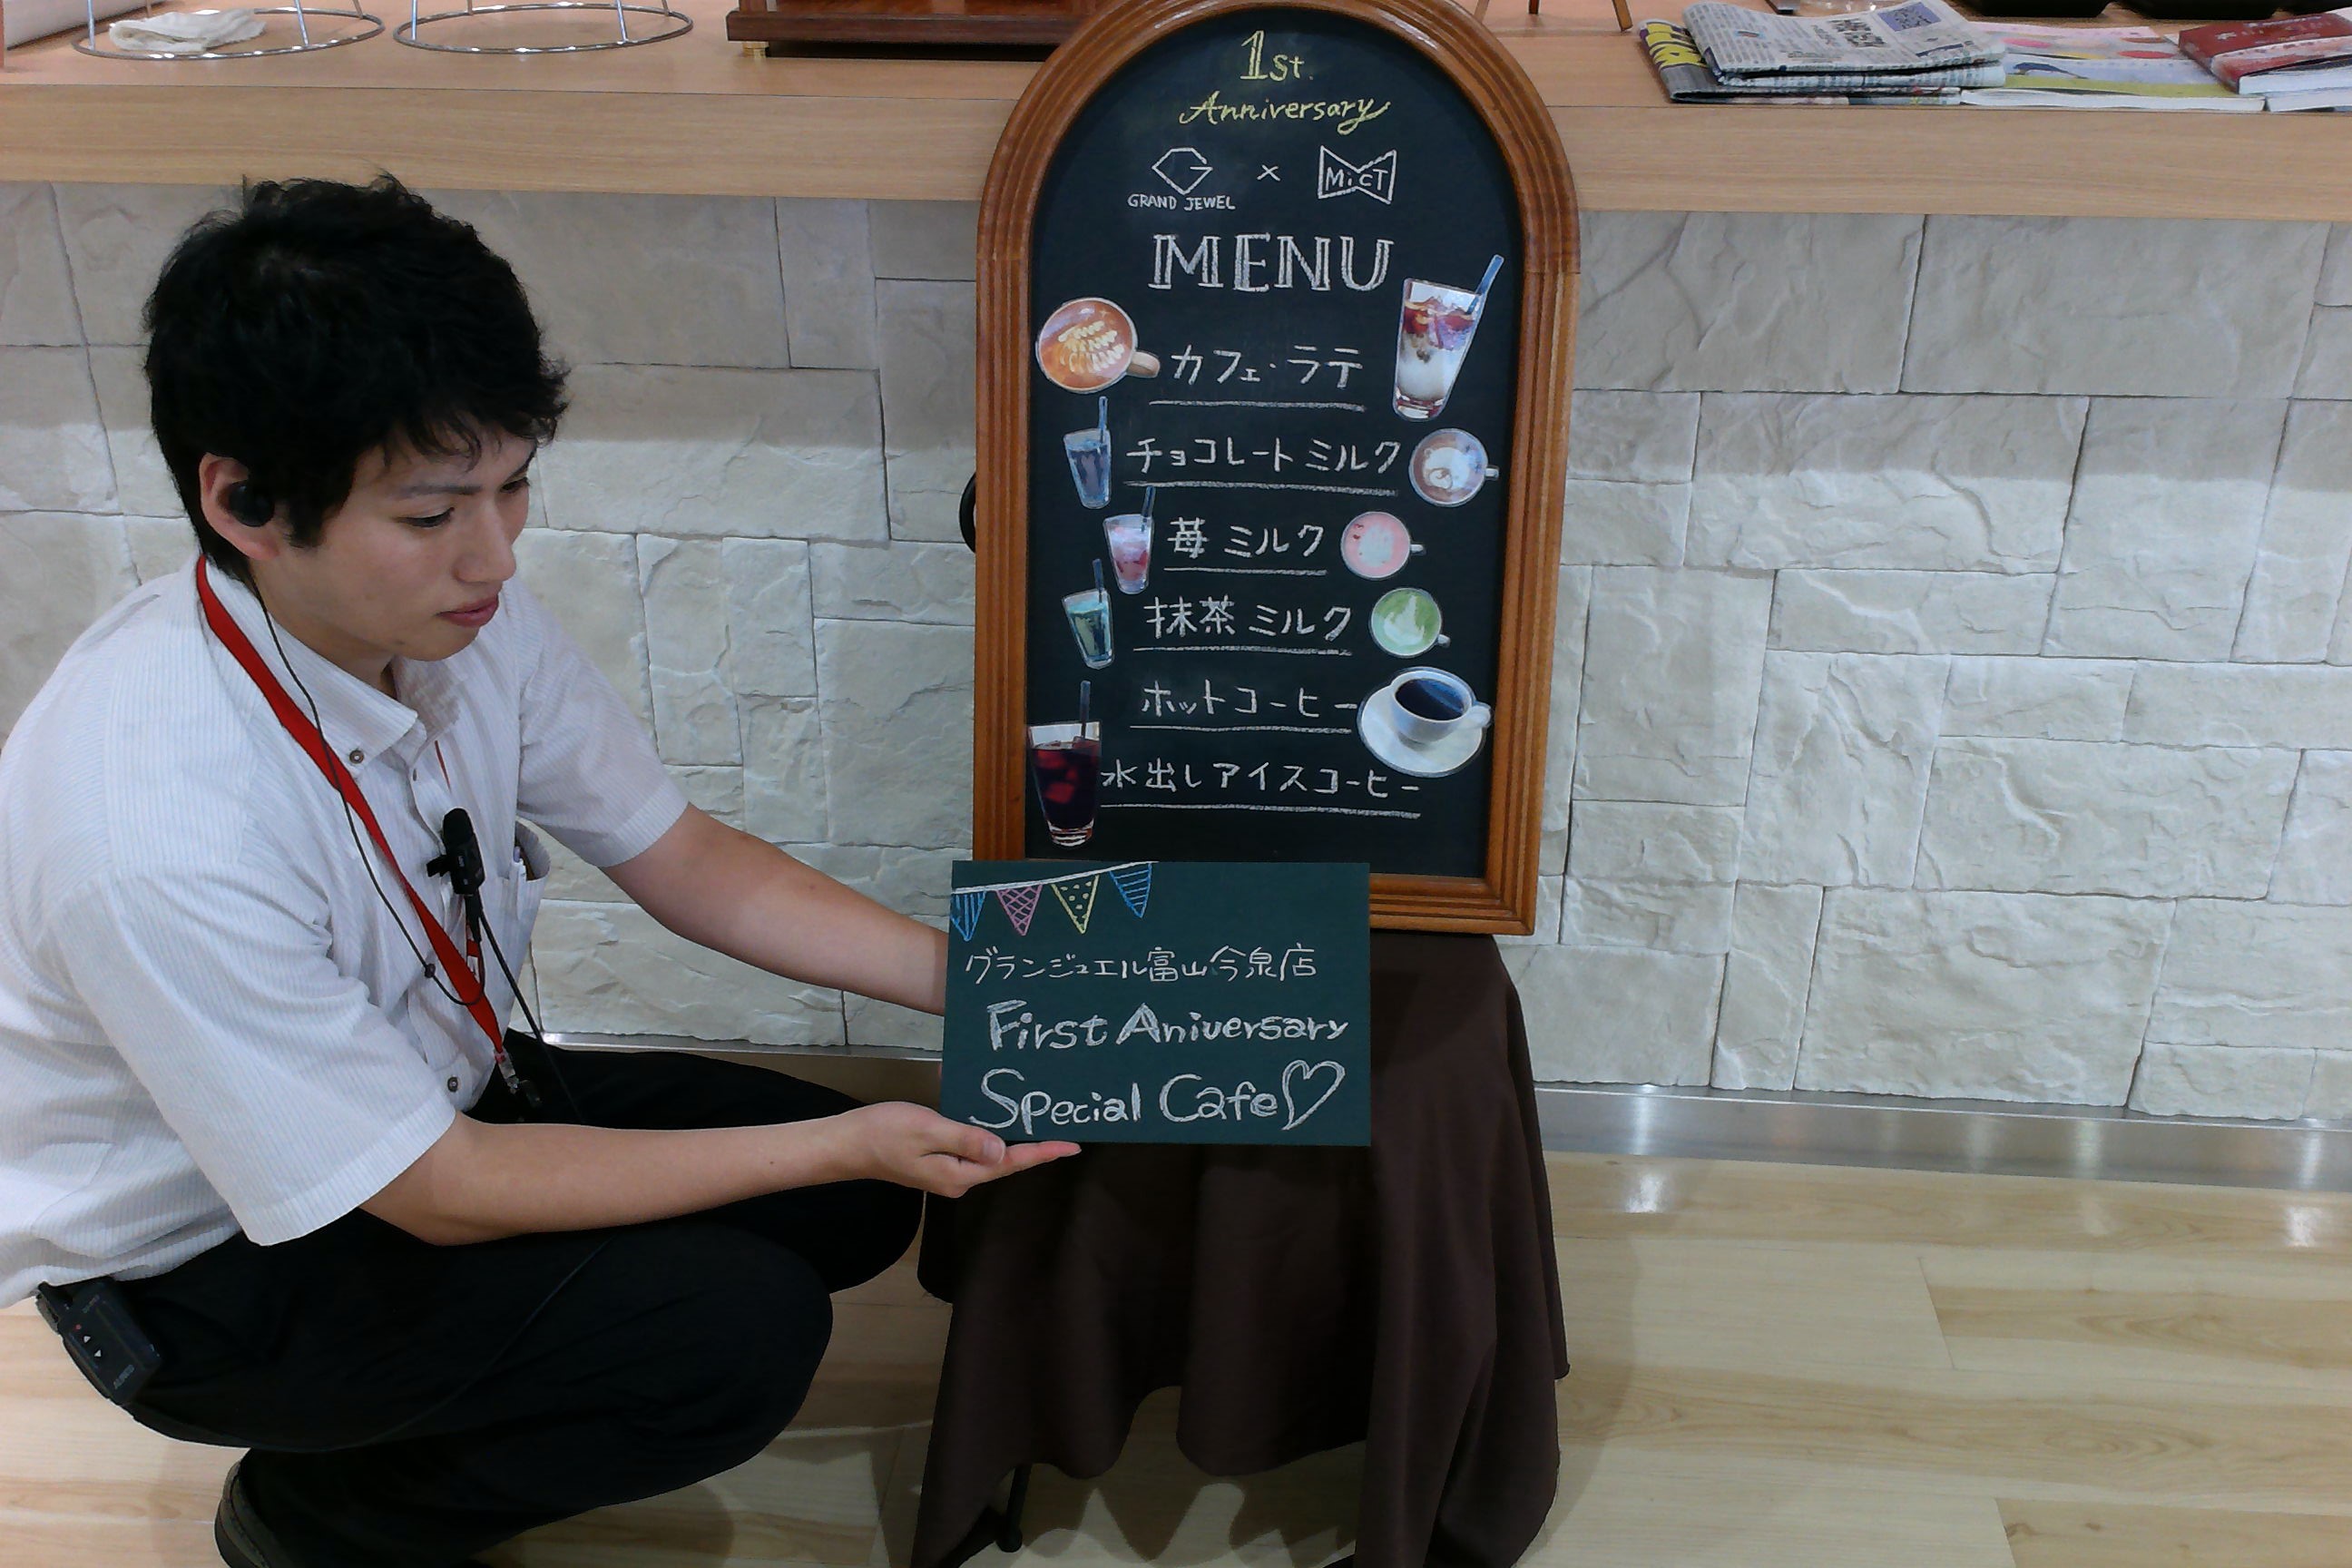 1st
Anniversary
G × MiCT
GRAND JEWEL
MENU
カフェ・ラテ
チョコレートミルク
苺ミルク
抹茶ミルク
ホットコーヒー
水出しアイスコーヒー
グランジュエル富山今泉店
First Aniversary
Special Cafe♡